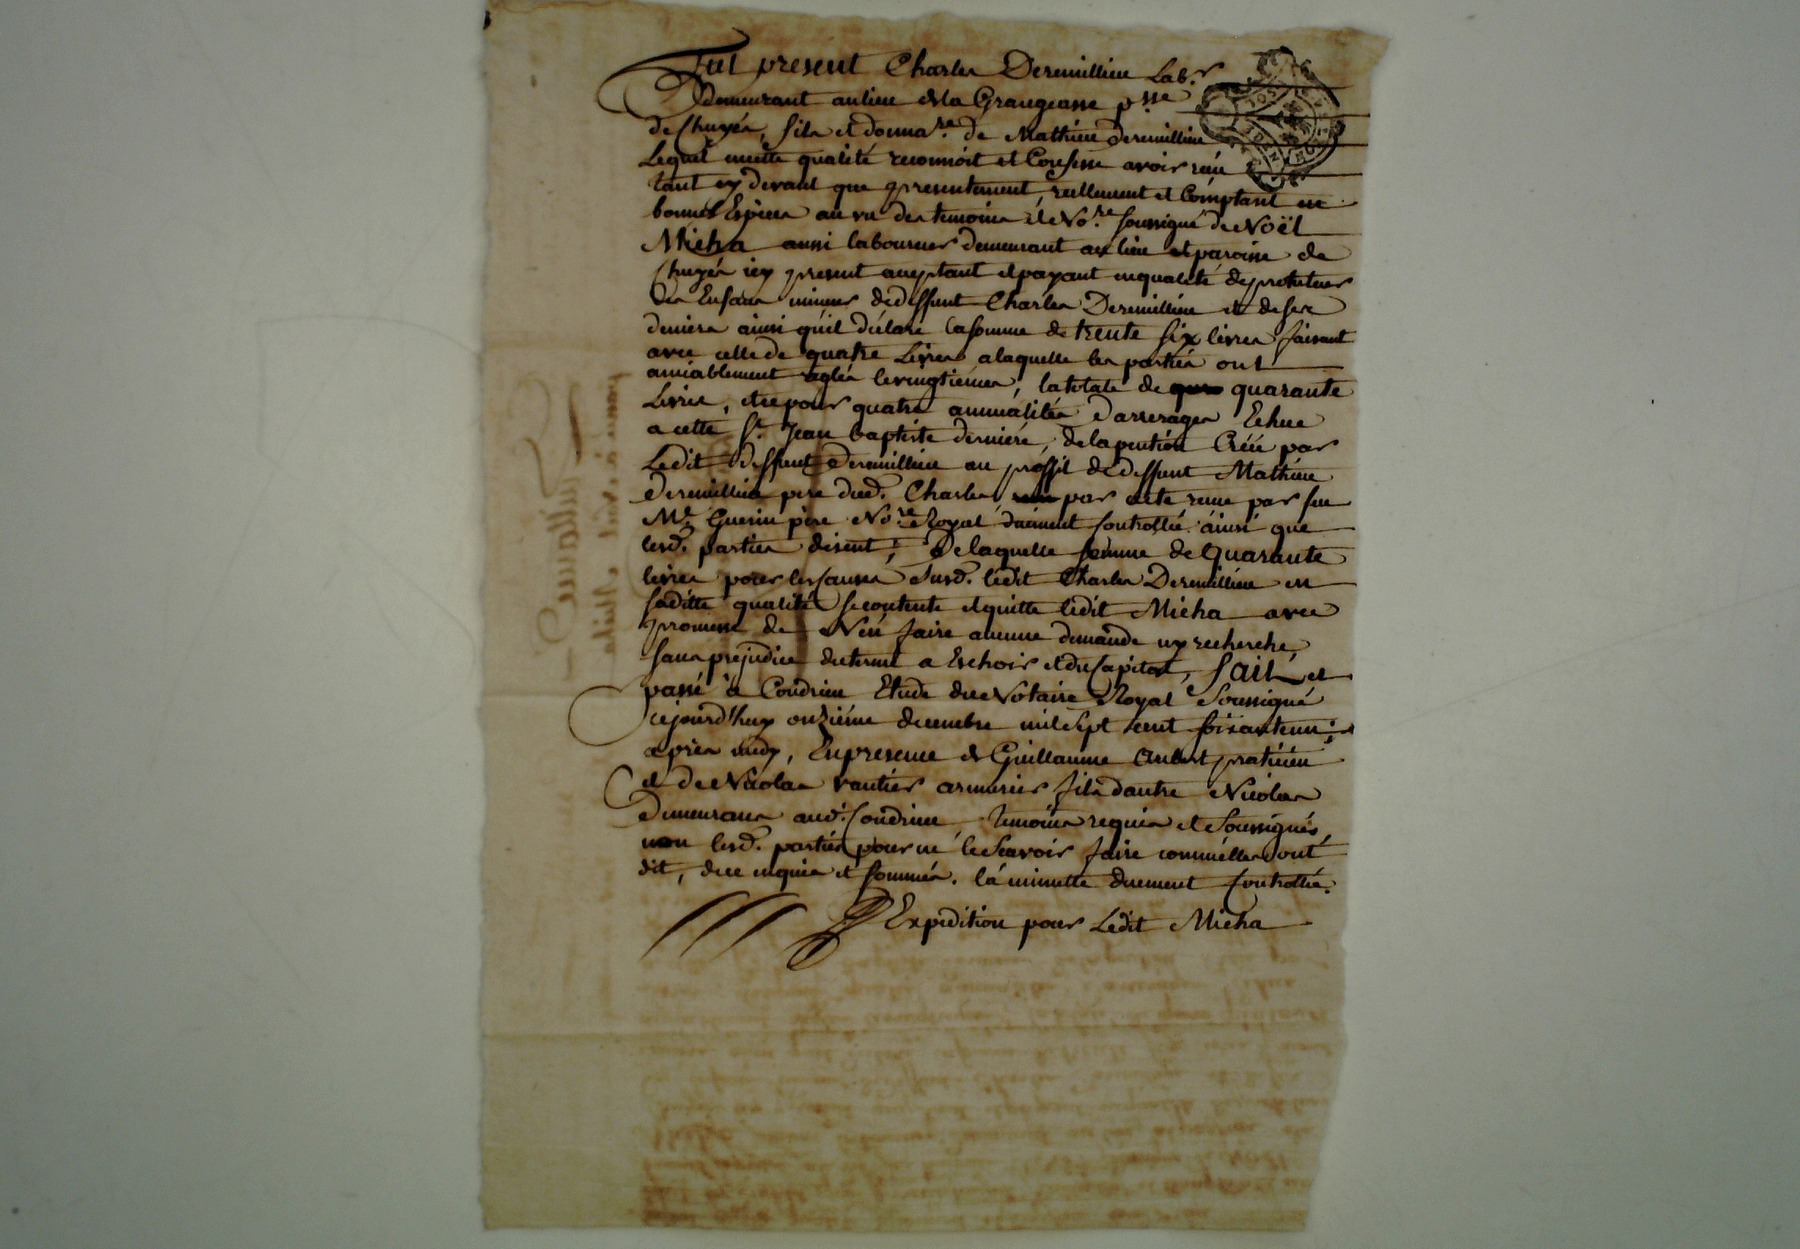 Fut present Charles Deremillieu Lab.r
demeurant au lieu de la Grangeasse p.sse
de Chuyés, fils et donna.re de Mathieu Deremillieu
Lequel en cette qualité reconnoit et Confesse avoir reçu
tant cy devant que presentement, reellement et Comptant en
bonnes Especes au vu des temoins et No.re soussigné de Noël
Micha aussi laboureur demeurant au lieu et paroisse de
Chuyés icy present acceptant et payant en qualité de protuteur
des Enfans mineurs de deffunt Charles Deremillieu et de ses
deniers ainsi qu'il declare la somme de trente six livres faisant
avec celle de quatre Livres a laquelle les parties ont
amiablement reglés les vingtiemes, la totale de quarante
Livres, et ce pour quatre annualités d'arrerages Echue
a cette St. Jean baptiste derniere, de la pention Créée par
Ledit deffunt Deremillieu au proffit de deffunt Mathieu
Deremillieu pere dud. Charles par acte reçue par feu
Me. Guerin père No.re Royal duement Controllé ainsi que
lesd. parties disent, De laquelle somme de Quarante
livres pour les causes susd. ledit Charles Deremillieu en
saditte qualité se contente et quitte ledit Micha avec
promesse de N'en faire aucune demande ny recherche,
sans prejudice du terme a Eschoir et du Capital, fait et
passé à Condrieu Etude du Notaire Royal Soussigné
cejourd'huy onzième decembre mil sept cent soixante un
après midy, En presence de Guillaume Aubert praticien
et de Nicolas vautier armurier fils d'autre Nicolas
demeurans aud. Condrieu temoins requis et Soussignés,
non lesd. parties pour ne le Scavoir faire comm'elles ont
dit, de ce enquis et sommés. la minutte duement Controllée.
Expedition pour Ledit Micha